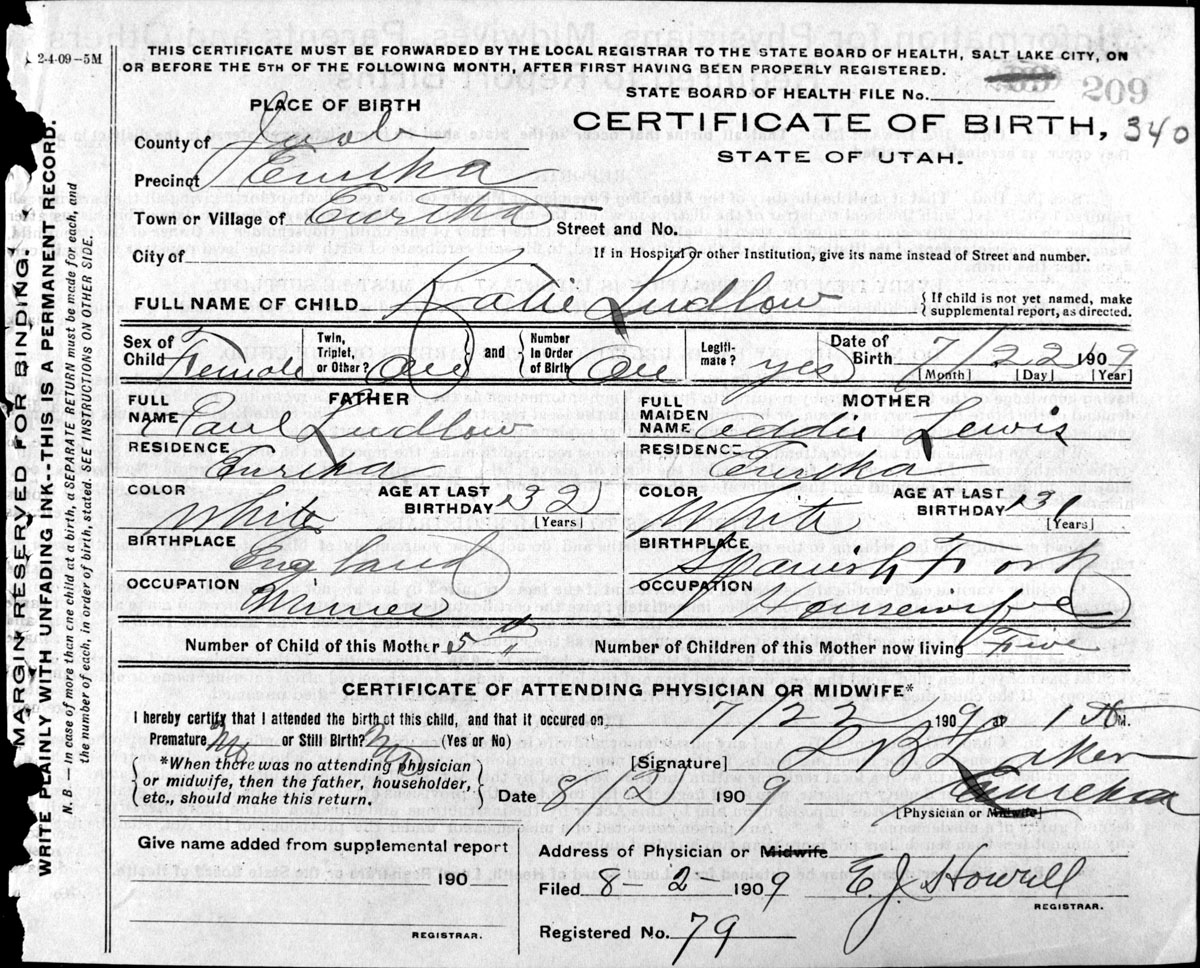 2-4-09-5M
THIS CERTIFICATE MUST BE FORWARDED BY THE LOCAL REGISTRAR TO THE STATE BOARD OF HEALTH, SALT LAKE CITY, ON
OR BEFORE THE 5TH OF THE FOLLOWING MONTH, AFTER FIRST HAVING BEEN PROPERLY REGISTERED.
209
STATE BOARD OF HEALTH FILE No.
PLACE OF BIRTH
CERTIFICATE OF BIRTH, 340
STATE OF UTAH.
County of Juab
Precinct Eureka
Town or Village of Eureka
Street and No.
City of
If in Hospital or other Institution, give its name instead of Street and number.
FULL NAME OF CHILD Katie Ludlow
{If child is not yet named, make
supplemental report, as directed.
Sex of Child Female
Twin, Triplet, or Other? One
and
Number in Order of Birth One
Legitimate? yes
Date of Birth 7/22 1909
[Month] [Day] [Year]
FATHER
FULL NAME Paul Ludlow
RESIDENCE Eureka
COLOR White
AGE AT LAST BIRTHDAY 32
[Years]
BIRTHPLACE England
OCCUPATION Miner
MOTHER
FULL MAIDEN NAME Addie Lewis
RESIDENCE Eureka
COLOR White
AGE AT LAST BIRTHDAY 31
[Years]
BIRTHPLACE Spanish Fork
OCCUPATION Housewife
Number of Child of this Mother 5th
Number of Children of this Mother now living Five
CERTIFICATE OF ATTENDING PHYSICIAN OR MIDWIFE*
I hereby certify that I attended the birth of this child, and that it occured on 7/22 1909 at 1 A M.
Premature No or Still Birth? No (Yes or No)
*When there was no attending physician
or midwife, then the father, householder,
etc., should make this return.
[Signature]
Date 8/2 1909
Eureka
[Physician or Midwife]
Give name added from supplemental report
190
REGISTRAR.
Address of Physician or Midwife
Filed 8-2- 1909 E. J. Howell
REGISTRAR.
Registered No. 79
MARGIN RESERVED FOR BINDING.
WRITE PLAINLY WITH UNFADING INK--THIS IS A PERMANENT RECORD.
N.B.—In case of more than one child at a birth, a SEPARATE RETURN must be made for each, and
the number of each, in order of birth, stated. SEE INSTRUCTIONS ON OTHER SIDE.